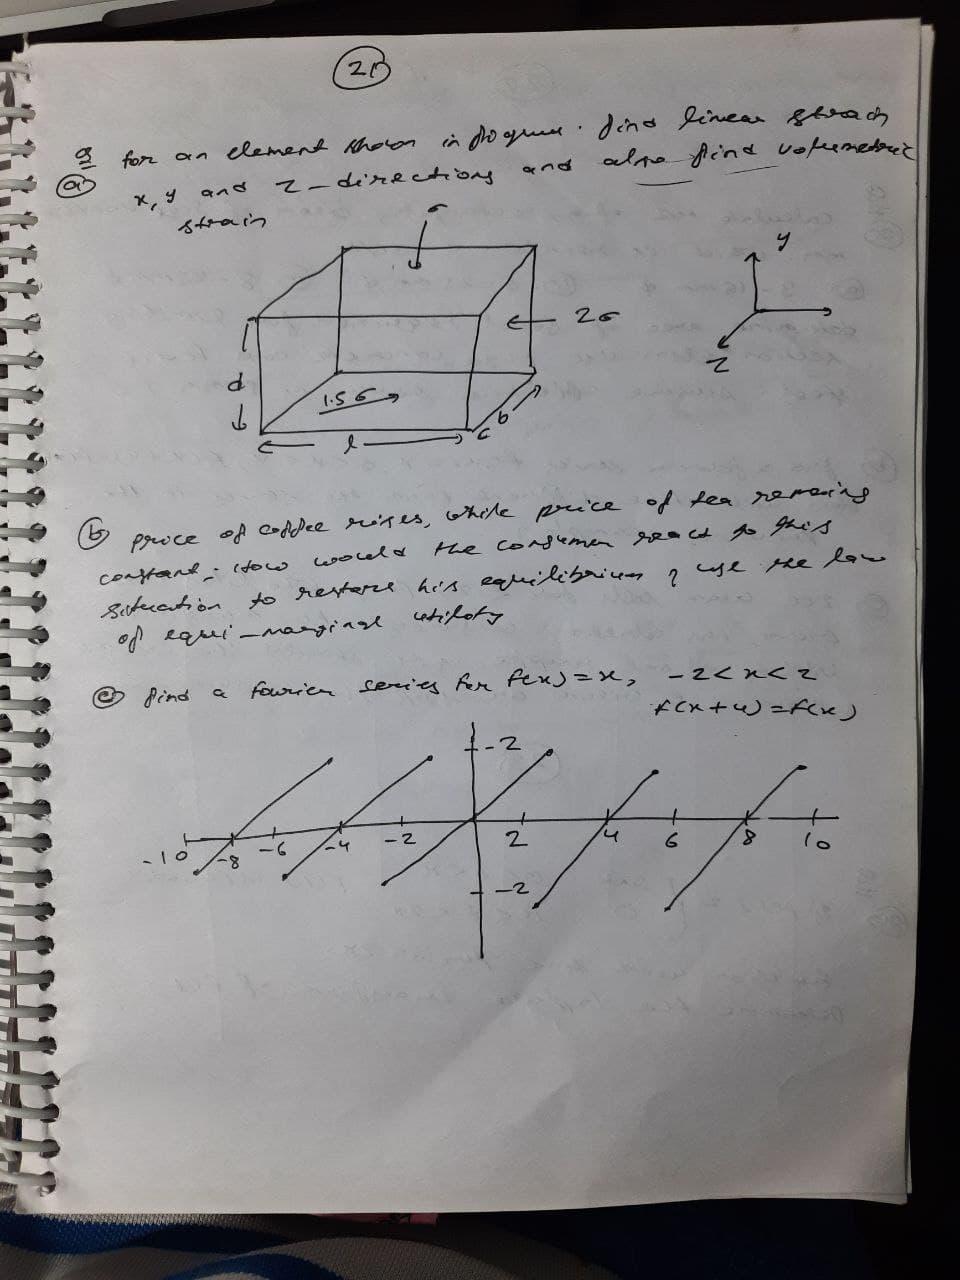 21
Q for an element shown in diagram. find linear strain
(a) x, y and z-directions and also find volumetric
strain
σ
y
2σ
z
d
1.5σ
b
l
c
(b) price of coffee rises, while price of tea remaining
constant. How would the consumer react to this
situation to restore his equilibrium? use the law
of equi-marginal utility
(c) find a fourier series for f(x)=x, -2<x<2
f(x+4)=f(x)
-2
-10 -8 -6 -4 -2 2 4 6 8 10
-2